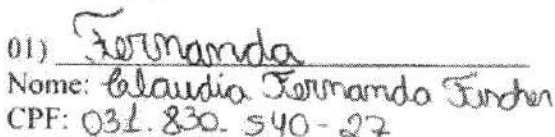 01) Fernanda
Nome: Claudia Fernanda Fincher
CPF: 031.830.540-27